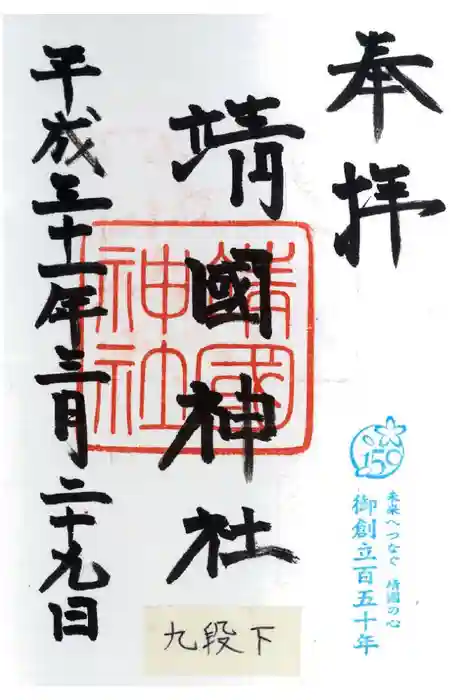 奉拝
靖國神社
平成三十一年三月二十九日
靖國
神社
150
未来へつなぐ 靖國の心
御創立百五十年
九段下